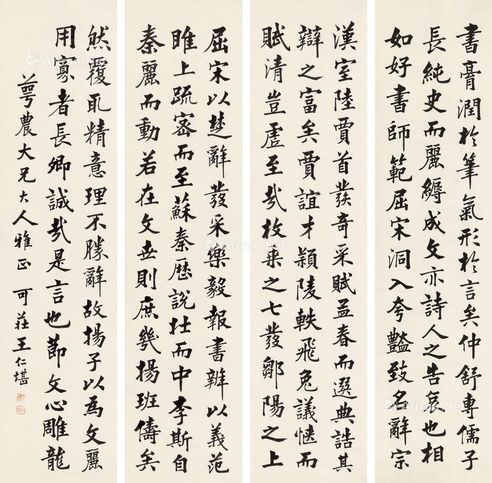 書膏潤於筆氣形於言矣仲舒專儒子
長純史而麗縟成文亦詩人之告哀也相
如好書師範屈宋洞入夸豔致名辭宗
漢室陸賈首發奇采賦孟春而選典誥其
辯之富矣賈誼才穎陵軼飛兔議愜而
賦清豈虛至哉枚乘之七發鄒陽之上
屈宋以楚辭發采樂毅報書辨以義范
雎上疏密而至蘇秦歷說壯而中李斯自
奏麗而動若在文世則庶幾揚班儔矣
然覆取精意理不勝辭故揚子以爲文麗
用寡者長卿誠哉是言也節文心雕龍
萼農大兄大人雅正 可莊王仁堪